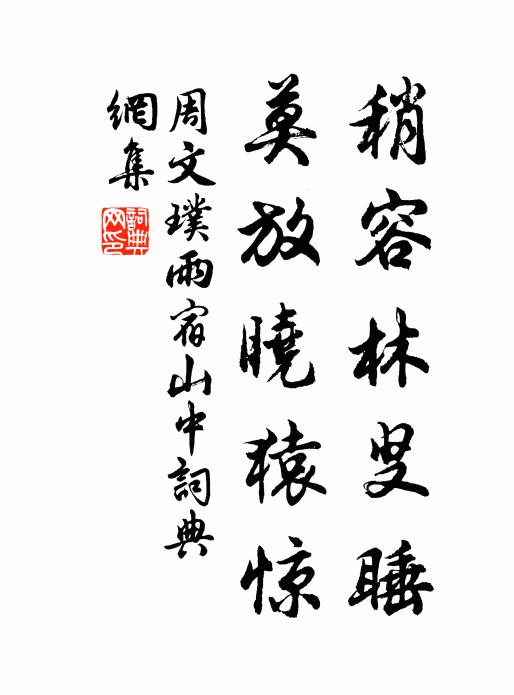 稍容林叟睡
莫放曉猿惊
周文璞雨宿山中詞典
網集
詞典
网印